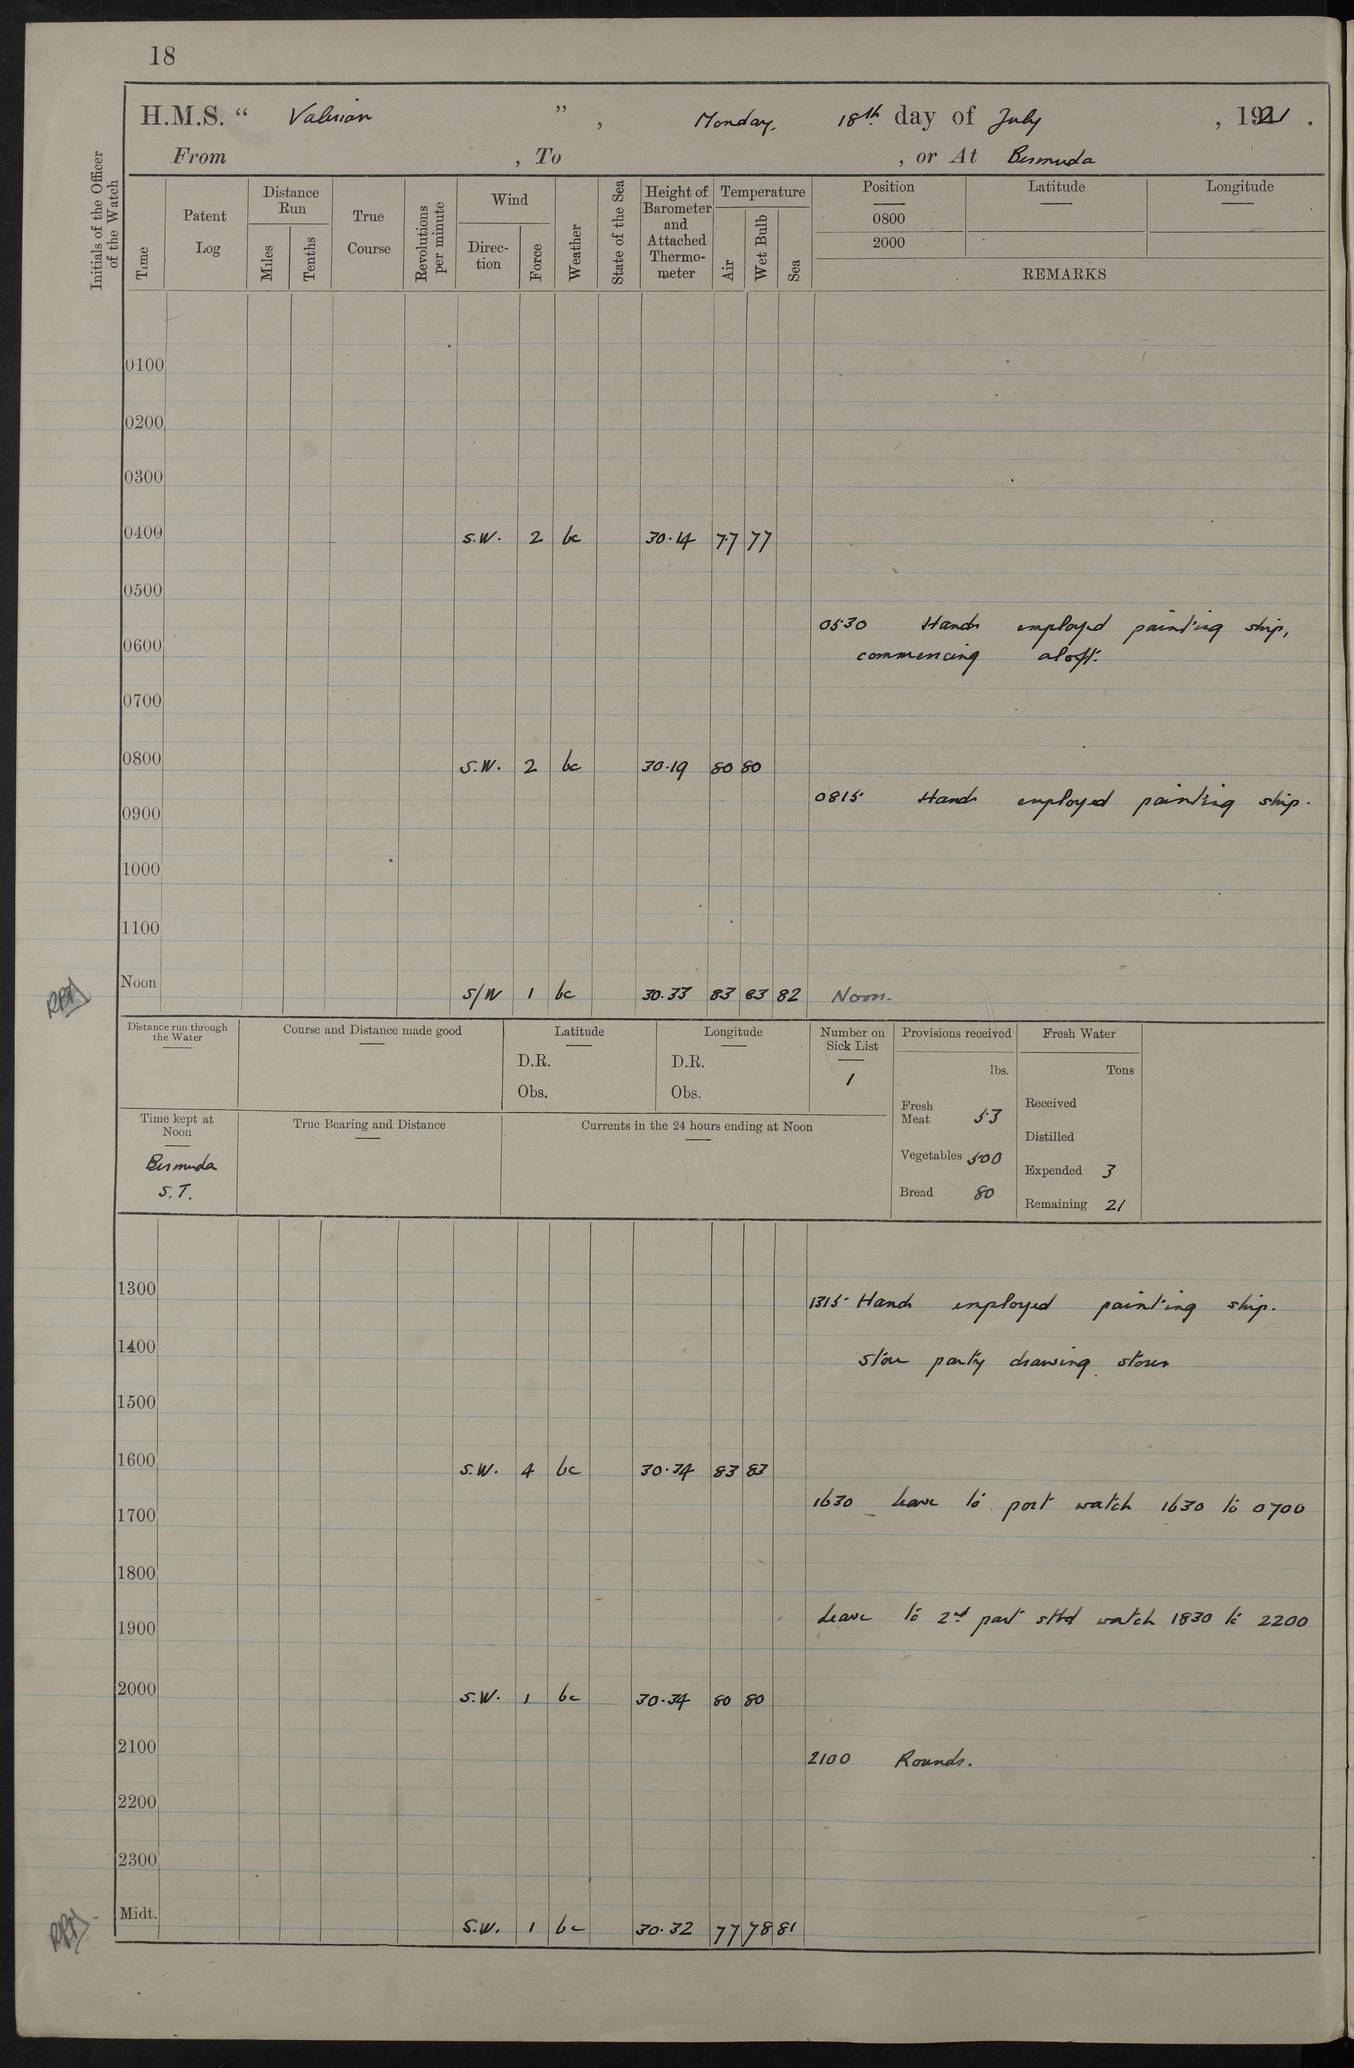 18
H.M.S. “ Valerian ” , Monday, 18th day of July , 1921 .
From , To , or At Bermuda
Initials of the Officer of the Watch
Time
Patent Log
Distance Run
Miles
Tenths
True Course
Revolutions per minute
Wind
Direc-tion
Force
Weather
State of the Sea
Height of Barometer and Attached Thermo-meter
Temperature
Air
Wet Bulb
Sea
Position Latitude Longitude
0800
2000
REMARKS
0100
0200
0300
0400 S.W. 2 bc 30.14 77 77
0500
0530 Hands employed painting ship,
0600 commencing aloft.
0700
0800 S.W. 2 bc 30.19 80 80
0815 Hands employed painting ship.
0900
1000
1100
Noon S/W 1 bc 30.33 83 83 82 Noon.
Distance run through the Water
Course and Distance made good
Latitude
D.R.
Obs.
Longitude
D.R.
Obs.
Number on Sick List
1
Provisions received
lbs.
Fresh Meat 53
Vegetables 500
Bread 80
Fresh Water
Tons
Received
Distilled
Expended 3
Remaining 21
Time kept at Noon
Bermuda
S.T.
True Bearing and Distance
Currents in the 24 hours ending at Noon
1300 1315 Hands employed painting ship.
1400 Store party drawing stores
1500
1600 S.W. 4 bc 30.34 83 83
1630 Leave to port watch 1630 to 0700
1700
1800
Leave to 2nd part stbd watch 1830 to 2200
1900
2000 S.W. 1 bc 30.34 80 80
2100 2100 Rounds.
2200
2300
Midt. S.W. 1 bc 30.32 77 78 81